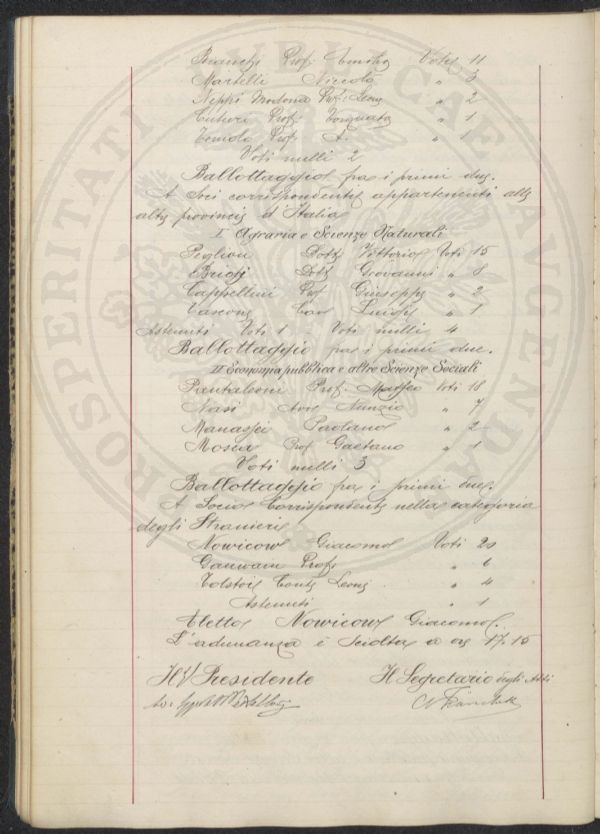 Bianchi Prof. Emilio Voti 11
Martelli Niccolò " 3
Neppi Modona Prof. Leone " 2
Cutieri Prof. Torquato " 1
Toniolo Prof. A. " 1
Voti nulli 2
Ballottaggio fra i primi due.
A Soci corrispondenti appartenenti alle
altre provincie d'Italia
I Agraria e Scienze Naturali
Peglion Dott. Vittorio Voti 15
Briosi Dott. Giovanni " 8
Cappellini Prof. Giuseppe " 2
Luigi " 1
Astenuti Voti 1 - Voti nulli 4
Ballottaggio fra i primi due.
II Economia pubblica e altre Scienze Sociali
Pantaleoni Prof. Maffeo Voti 18
Nasi Avv. Nunzio " 7
Manassei Paolano " 2
Mosca Prof Gaetano " 1
Voti nulli 3
Ballottaggio fra i primi due.
A Socio Corrispondente nella categoria
degli Stranieri
Nowicow Giacomo Voti 20
Prof. " 6
Tolstoi Conte Leone " 4
Astenuti " 1
Eletto Nowicow Giacomo.
L'adunanza è sciolta a ore 17.15
Il V. Presidente Il Segretario degli Atti
PROSPERITATI PUBLICAE AVGENDAE